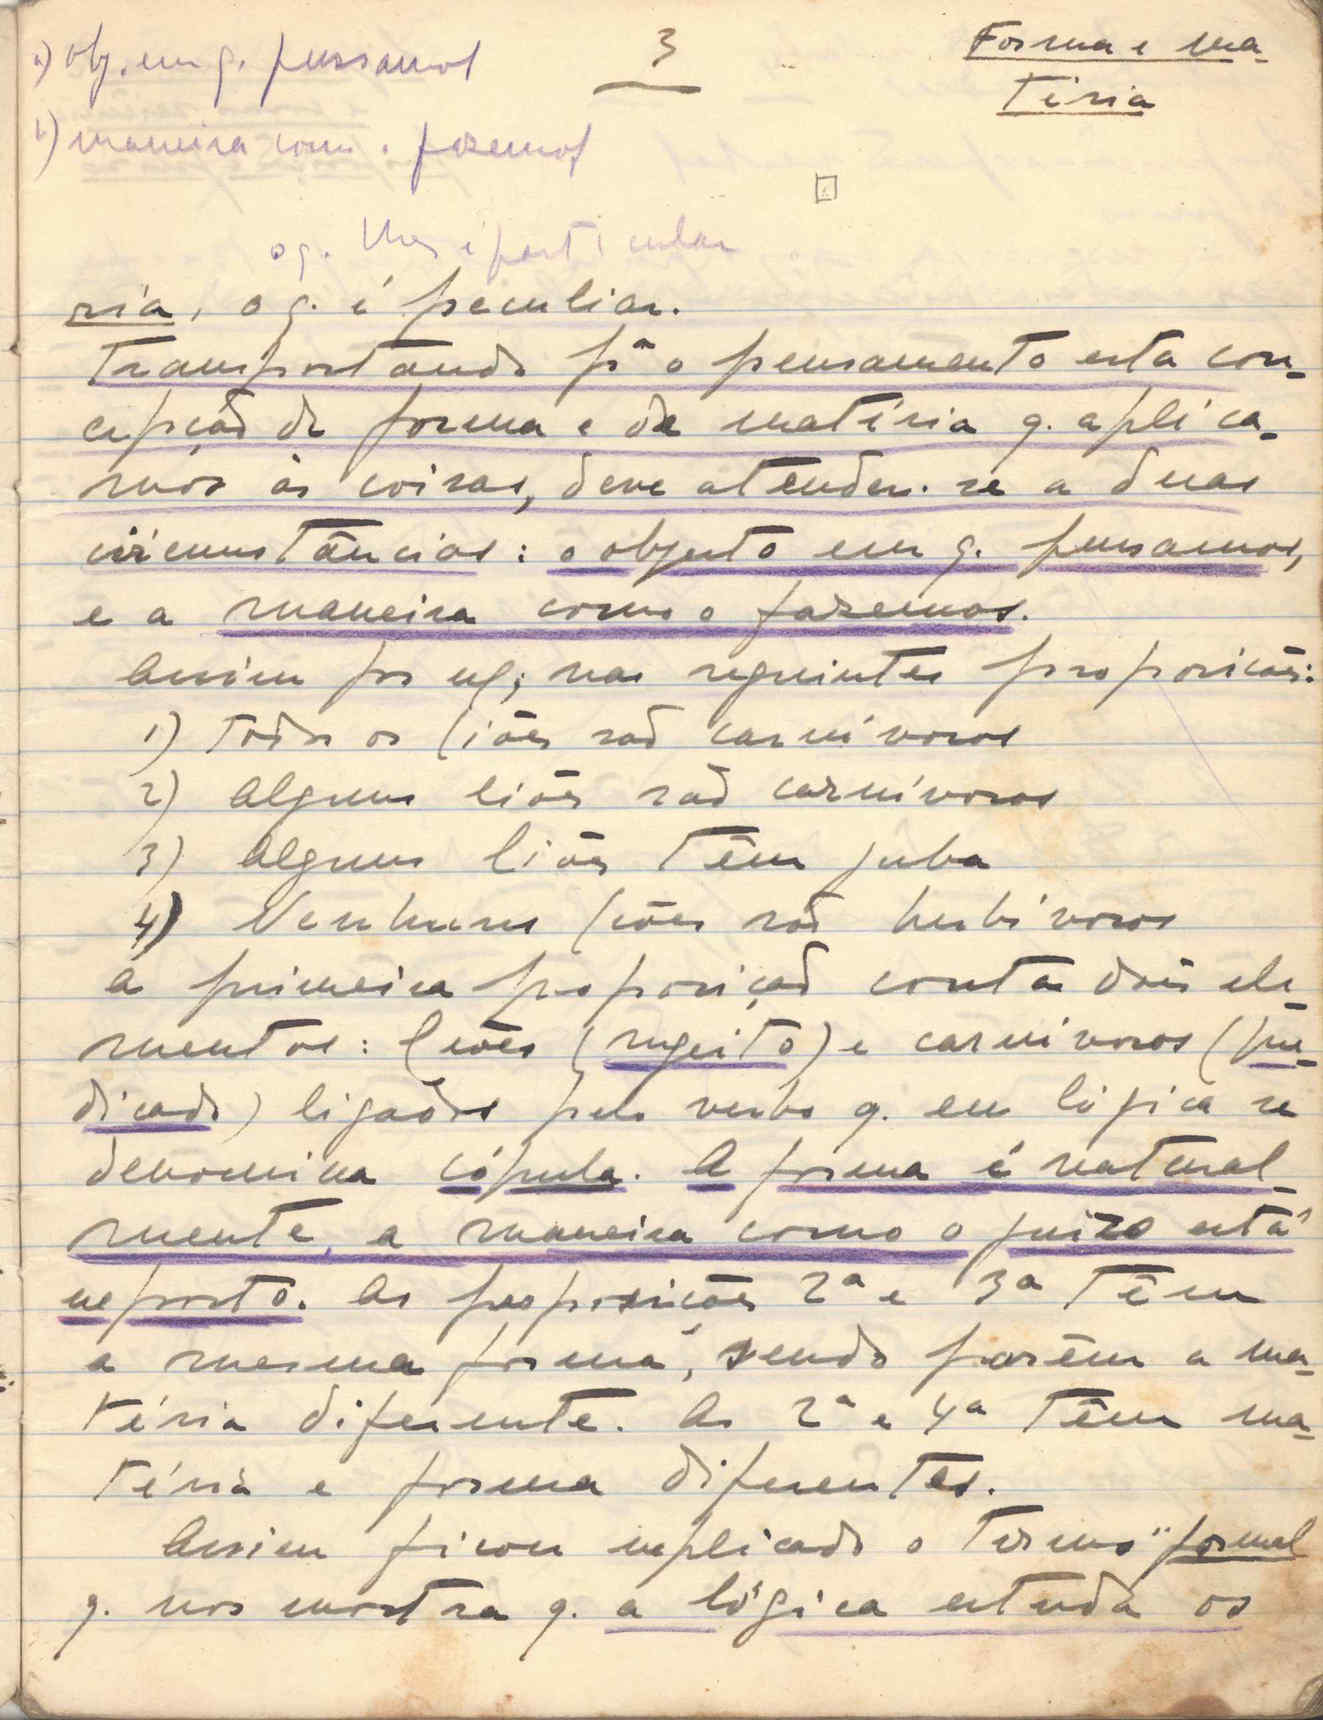 a) obj. em q. pensamos
3
Forma e ma-
téria
b) maneira como o fazemos
o q. lhes é particular
ria, o q. é peculiar.
Transportando pª o pensamento esta con-
cepção de forma e de matéria q. aplica-
mos às coisas, deve atender-se a duas
circunstâncias: o objecto em q. pensamos,
e a maneira como o fazemos.
Assim por ex; nas seguintes proposicões:
1) Todos os liões são carnívoros
2) Alguns liões são carnívoros
3) Alguns liões têm juba
4) Nenhuns liões são herbívoros
A primeira proposiçao conta dois ele-
mentos: leões (sugeito) e carnívoros (pre-
dicado) ligados pelo verbo q. em lógica se
denomina cópula. A forma é natural-
mente, a maneira como o juizo está
exposto. As proposicões 2ª e 3ª têm
a mesma forma, sendo porêm a ma-
téria diferente. As 2ª e 4ª têm ma-
téria e forma diferentes.
Assim ficou explicado o termo "formal
q. nos mostra q. a lógica estuda os